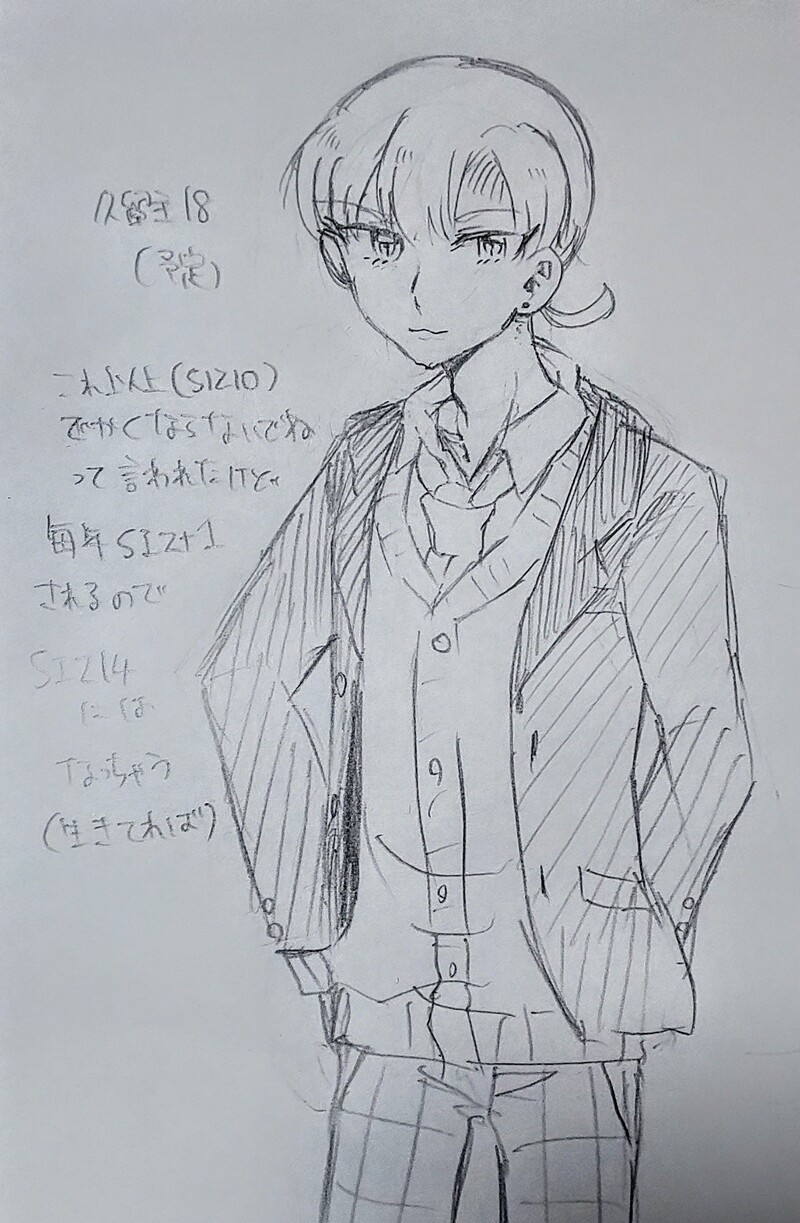 久留主18
(予定)
これ以上(SIZ10)
でかくならないでね
って言われたけど
毎年SIZ+1
されるので
SIZ14
には
なっちゃう
(生きてれば)